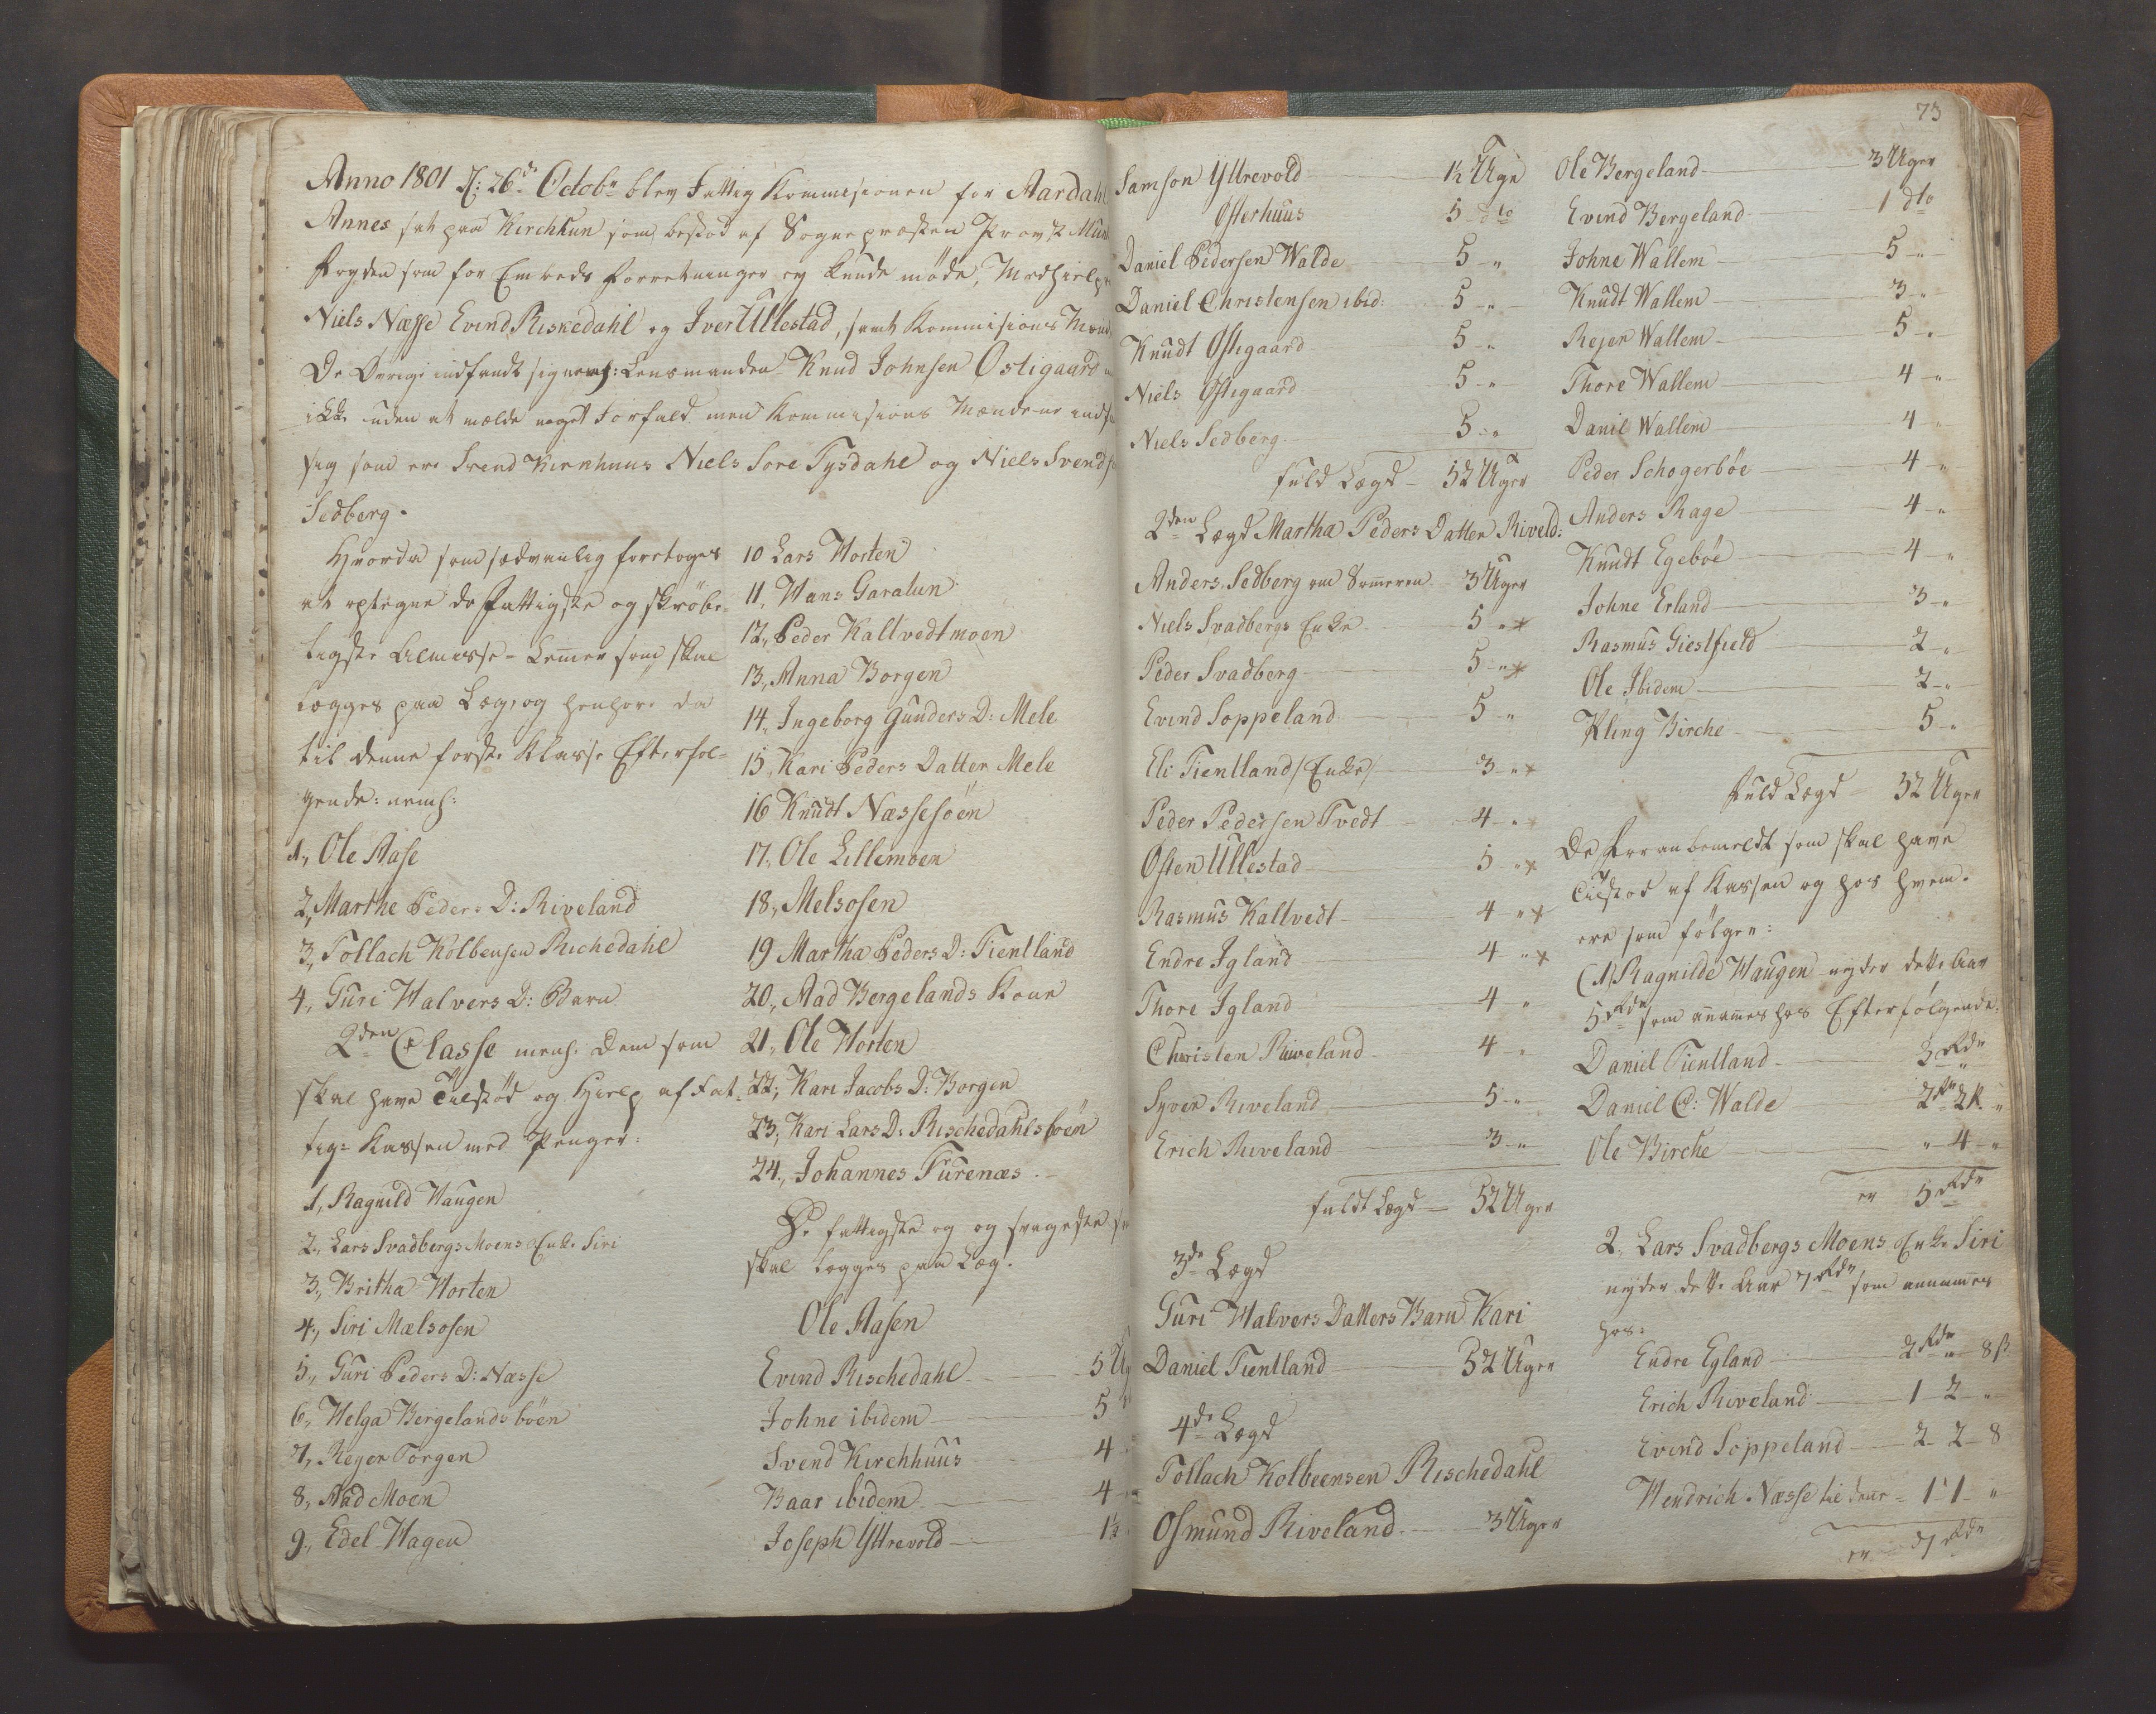 Anno 1801 d: 26de Octobr blev Fattig Kommisionen for Aardahl
Annes sat paa Kirchhun som bestod af Sognepræsten Provst Mun
Fryden som for Embeds Forretninger ey kunde møde, Medhielper
Niels Næsse Evind Riskedahl og Iver Ullestad, samt Kommisions Mænd
De Øvrige indfandt sig nemh: Lensmanden Knud Johnsen Østigaard
ikke uden at melde noget Forfald men Kommisions Mændene indf
sig som ere Svend Kirkhuus Niels Sore Tysdahl og Niels Svends
Sedberg.
Hvorda som sædvanlig foretoges
at optegne de Fattigste og skrøbe-
ligste Almisse-Lemer som skal
lægges paa Læg, og henhøre da
til denne første Klasse Efterføl-
gende: nemh:
1, Ole Aase
2, Marthe Peders D: Riveland
3, Tollach Kolbensen Richedahl
4, Guri Halvers D: Barn
2den Classe nemh. Dem som
skal have Tilskød og Hielp af Fat-
tig-Kassen med Penger:
1, Ragnild Haugen
2, Lars Svadbergs Moens Enke Siri
3, Britha Horten
4, Siri Mælsosen
5, Guri Peders D: Næsse
6, Helga Bergelands böen
7, Reyer Torgen
8, Aad Moen
9, Edel Hagen
10 Lars Horten
11, Hans Garalun
12, Peder Kallvedtmoen
13, Anna Borgen
14, Ingeborg Gunders D: Mele
15, Kari Peders Datter Mele
16 Knudt Næssesöen
17, Ole Lillemoen
18, Melsosen
19 Martha Peders D: Tientland
20, Aad Bergelands Kone
21, Ole Horten
22, Kari Jacobs D: Borgen
23, Kari Lars D: Rischedahlsböen
24, Johannes Furenæs.
De fattigste og og svageste s
skal lægges paa Læg.
Ole Aasen
Evind Rischedahl 5 Ug
Johne ibidem 5
Svend Kirchhuus 4
Baar ibidem 4
Joseph Ÿttrevold 1½
73
Samson Ÿttrevold 1½ Uge
Østerhuus 5 dto
Daniel Pedersen Walde 5 "
Daniel Christensen ibid: 5 "
Knudt Østigaard 5 "
Niels Østigaard 5 "
Niels Sedberg 5 "
fuld Lægd 52 Uger
2den Lægd Martha Peders Datter Riveld:
Anders Sedberg om Sommeren 3 Uger
Niels Svadbergs Enke 5 "
Peder Svadberg 5 "
Evind Soppeland 5 "
Eli Tientland /Enke/ 3 "
Peder Pedersen Tvedt 4 "
Østen Ullestad 5 "
Rasmus Kallvedt 4 "
Endre Igland 4 "
Thore Igland 4 "
Christen Riiveland 4 "
Syver Riveland 5 "
Erich Riveland 3 "
fuldt Lægd 52 Uger
3de Lægd
Guri Halvers Datters Barn Kari
Daniel Tientland 52 Uger
4de Lægd
Tollach Kolbeensen Rischedahl
Osmund Riveland 3 Uger
Ole Bergeland 3 Uger
Evind Bergeland 1 dto
Johne Wallem 5 "
Knudt Wallem 3 "
Rejer Wallem 5 "
Thore Wallem 4 "
Danil Wallem 4 "
Peder Schogerböe 4 "
Anders Rage 4 "
Knudt Egeböe 4 "
Johne Erland 3 "
Rasmus Giestfield 2 "
Ole Ibidem 2 "
Kling Birche 5 "
fuld Lægd 52 Uger
De foranbemeldt som skal have
Tilskod af Kassen og hos hvem.
ere som fölger:
(1) Ragnilde Haugen nyder dette Aar
5 Rdr som annames hos Efterfølgende:
Daniel Tientland 3 Rdr "
Daniel C: Walde 2 Rr 2k "
Ole Birche " 4 "
er 5 Rdr
2, Lars Svadbergs Moens Enke Siri
nyder dette Aar 7 Rdr som annames
hos:
Endre Egland 2 Rdr " 8 s
Erich Riveland 1 2 "
Evind Soppeland 2 2 8
Hendrich Næsse til denne 1 1 "
er 7 Rdr